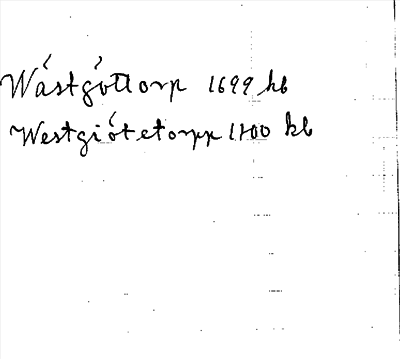 Wástgóttorp 1699 kb
Westgiótetorpp 1700 kb